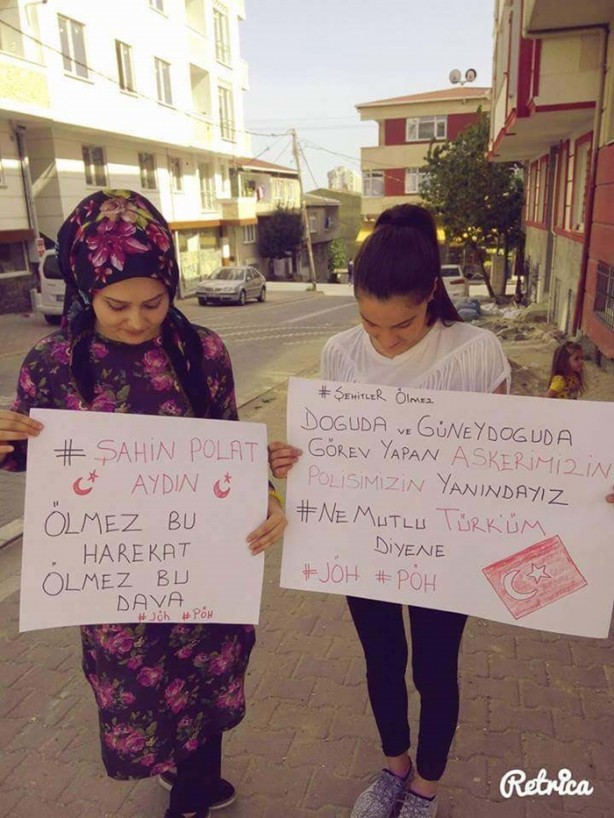 # ŞAHİN POLAT
AYDIN
ÖLMEZ BU
HAREKAT
ÖLMEZ BU
DAVA
#Jöh #PÖH
# ŞEHİTLER ÖLMEZ
DOĞUDA VE GÜNEYDOĞUDA
GÖREV YAPAN ASKERİMİZİN
POLİSİMİZİN YANINDAYIZ
#NE MUTLU TÜRK'ÜM
DİYENE
#JÖH #PÖH
Retrica